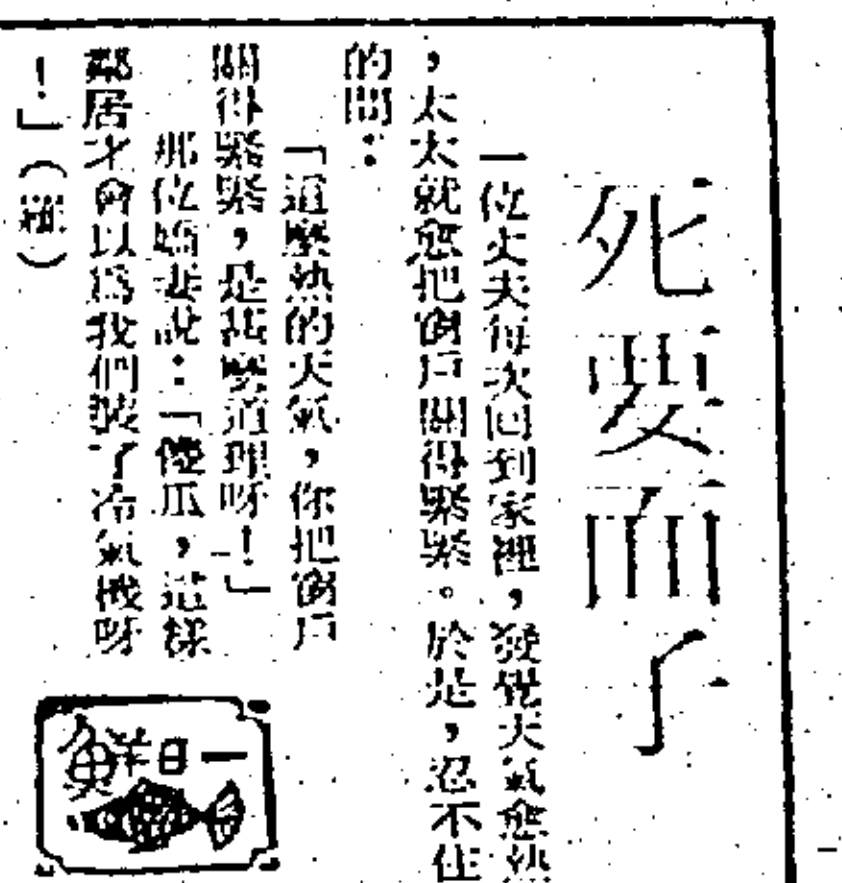 死要面子
一位丈夫每次回到家裡，發覺天氣愈熱
，太太就愈把窗戶關得緊緊。於是，忍不住
的問：
「這麼熱的天氣，你把窗戶
關得緊緊，是甚麼道理呀！」
那位嬌妻說：「傻瓜，這樣
鄰居才會以爲我們裝了冷氣機呀
！」（羅）
一日鮮魚